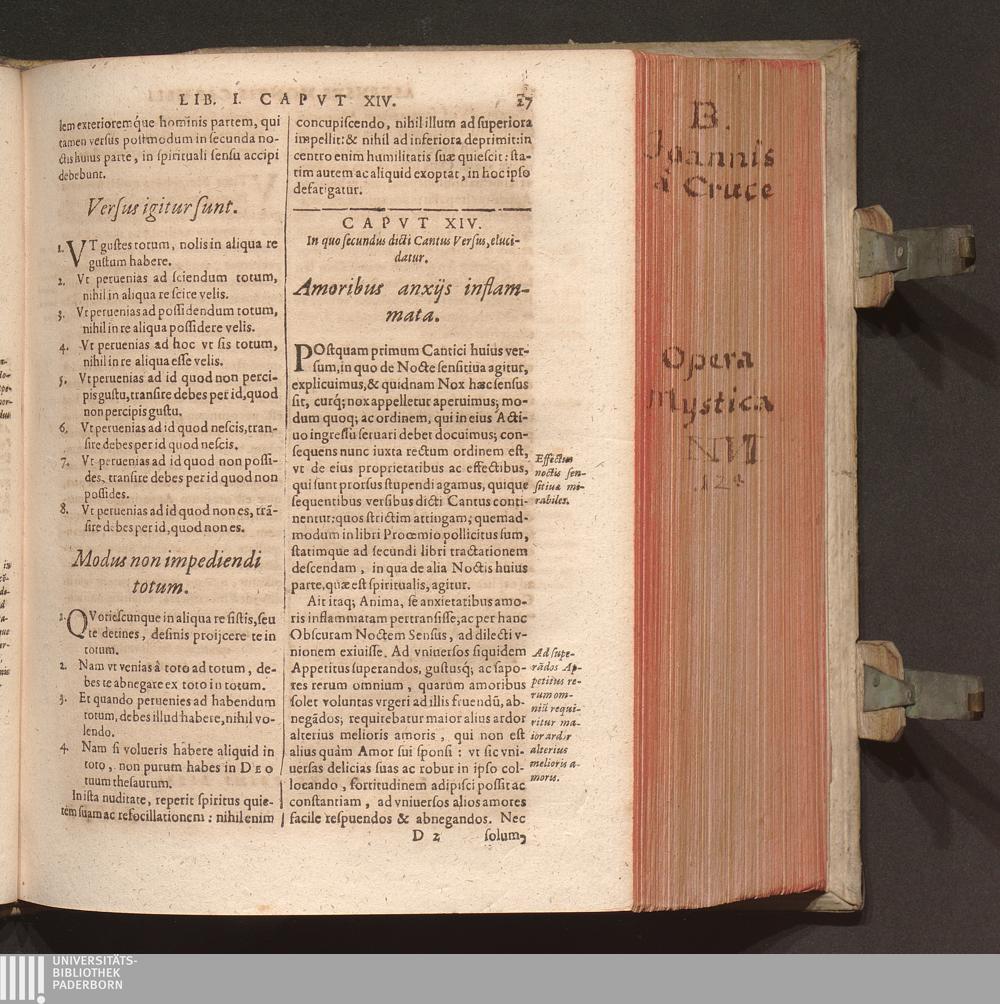 LIB. I. CAPVT XIV. 27
lem exterioremque hominis partem, qui
tamen versus postmodum in secunda no-
ctis huius parte, in spirituali sensu accipi
debebunt.
Versus igitur sunt.
1. VT gustes totum, nolis in aliqua re
gustum habere.
2. Vt peruenias ad sciendum totum,
nihil in aliqua re scire velis.
3. Vt peruenias ad possidendum totum,
nihil in re aliqua possidere velis.
4. Vt peruenias ad hoc vt sis totum,
nihil in re aliqua esse velis.
5. Vt peruenias ad id quod non perci-
pis gustu, transire debes per id, quod
non percipis gustu.
6. Vt peruenias ad id quod nescis, tran-
sire debes per id quod nescis.
7. Vt peruenias ad id quod non possi-
des, transire debes per id quod non
possides.
8. Vt peruenias ad id quod non es, trã-
sire debes per id, quod non es.
Modus non impediendi
totum.
1. QVotiescunque in aliqua re sistis, seu
te detines, desinis proijcere te in
totum.
2. Nam vt venias à toto ad totum, de-
bes te abnegare ex toto in totum.
3. Et quando peruenies ad habendum
totum, debes illud habere, nihil vo-
lendo.
4. Nam si volueris habere aliquid in
toto, non purum habes in DEO
tuum thesaurum.
In ista nuditate, reperit spiritus quie-
tem suam ac refocillationem: nihil enim
concupiscendo, nihil illum ad superiora
impellit: & nihil ad inferiora deprimit: in
centro enim humilitatis suæ quiescit: sta-
tim autem ac aliquid exoptat, in hoc ipso
defatigatur.
CAPVT XIV.
In quo secundus dicti Cantus Versus, eluci-
datur.
Amoribus anxijs inflam-
mata.
POstquam primum Cantici huius ver-
sum, in quo de Nocte sensitiua agitur,
explicuimus, & quidnam Nox hæc sensus
sit, curq; nox appelletur aperuimus; mo-
dum quoq; ac ordinem, qui in eius Acti-
uo ingressu seruari debet docuimus; con-
sequens nunc iuxta rectum ordinem est,
vt de eius proprietatibus ac effectibus,
qui sunt prorsus stupendi agamus, quique
sequentibus versibus dicti Cantus conti-
nentur: quos strictim attingam; quemad-
modum in libri Proœmio pollicitus sum,
statimque ad secundi libri tractationem
descendam, in qua de alia Noctis huius
parte, quæ est spiritualis, agitur.
Ait itaq; Anima, se anxietatibus amo-
ris inflammatam pertransisse, ac per hanc
Obscuram Noctem Sensus, ad dilecti v-
nionem exiuisse. Ad vniuersos siquidem
Appetitus superandos, gustusq; ac sapo-
res rerum omnium, quarum amoribus
solet voluntas vrgeri ad illis fruendũ, ab-
negãdos; requirebatur maior alius ardor
alterius melioris amoris, qui non est
alius quàm Amor sui sponsi: vt sic vni-
uersas delicias suas ac robur in ipso col-
locando, fortitudinem adipisci possit ac
constantiam, ad vniuersos alios amores
facile respuendos & abnegandos. Nec
D 2 solum,
Effectus
noctis sen-
sitiuæ mi-
rabiles.
Ad supe-
rãdos Ap-
petitus re-
rum om-
niũ requi-
ritur ma-
ior ardor
alterius
melioris a-
moris.
B.
Joannis
à Cruce
Opera
Mystica
UNIVERSITÄTS-
BIBLIOTHEK
PADERBORN